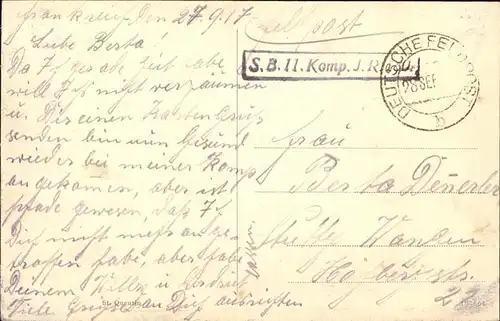 Frankreich den 27.9.17
Feldpost
Liebe Berta!
Da ich gerade Zeit habe
will ich nicht versäumen
u. Dir einen Kartengruß
senden bin nun Gesund
wieder bei meiner Komp
angekommen, aber ist
schade gewesen, daß ich
Dich nicht mehr ange
troffen habe, aber habe
Deinem Willen
Viele Grüße an Dich ausrichten
lassen.
S. B. 11. Komp. J. R.
DEUTSCHE FELDPOST
28 SEP
b
Frau
Berta
Stuttg. Wangen
str.
St. Quentin